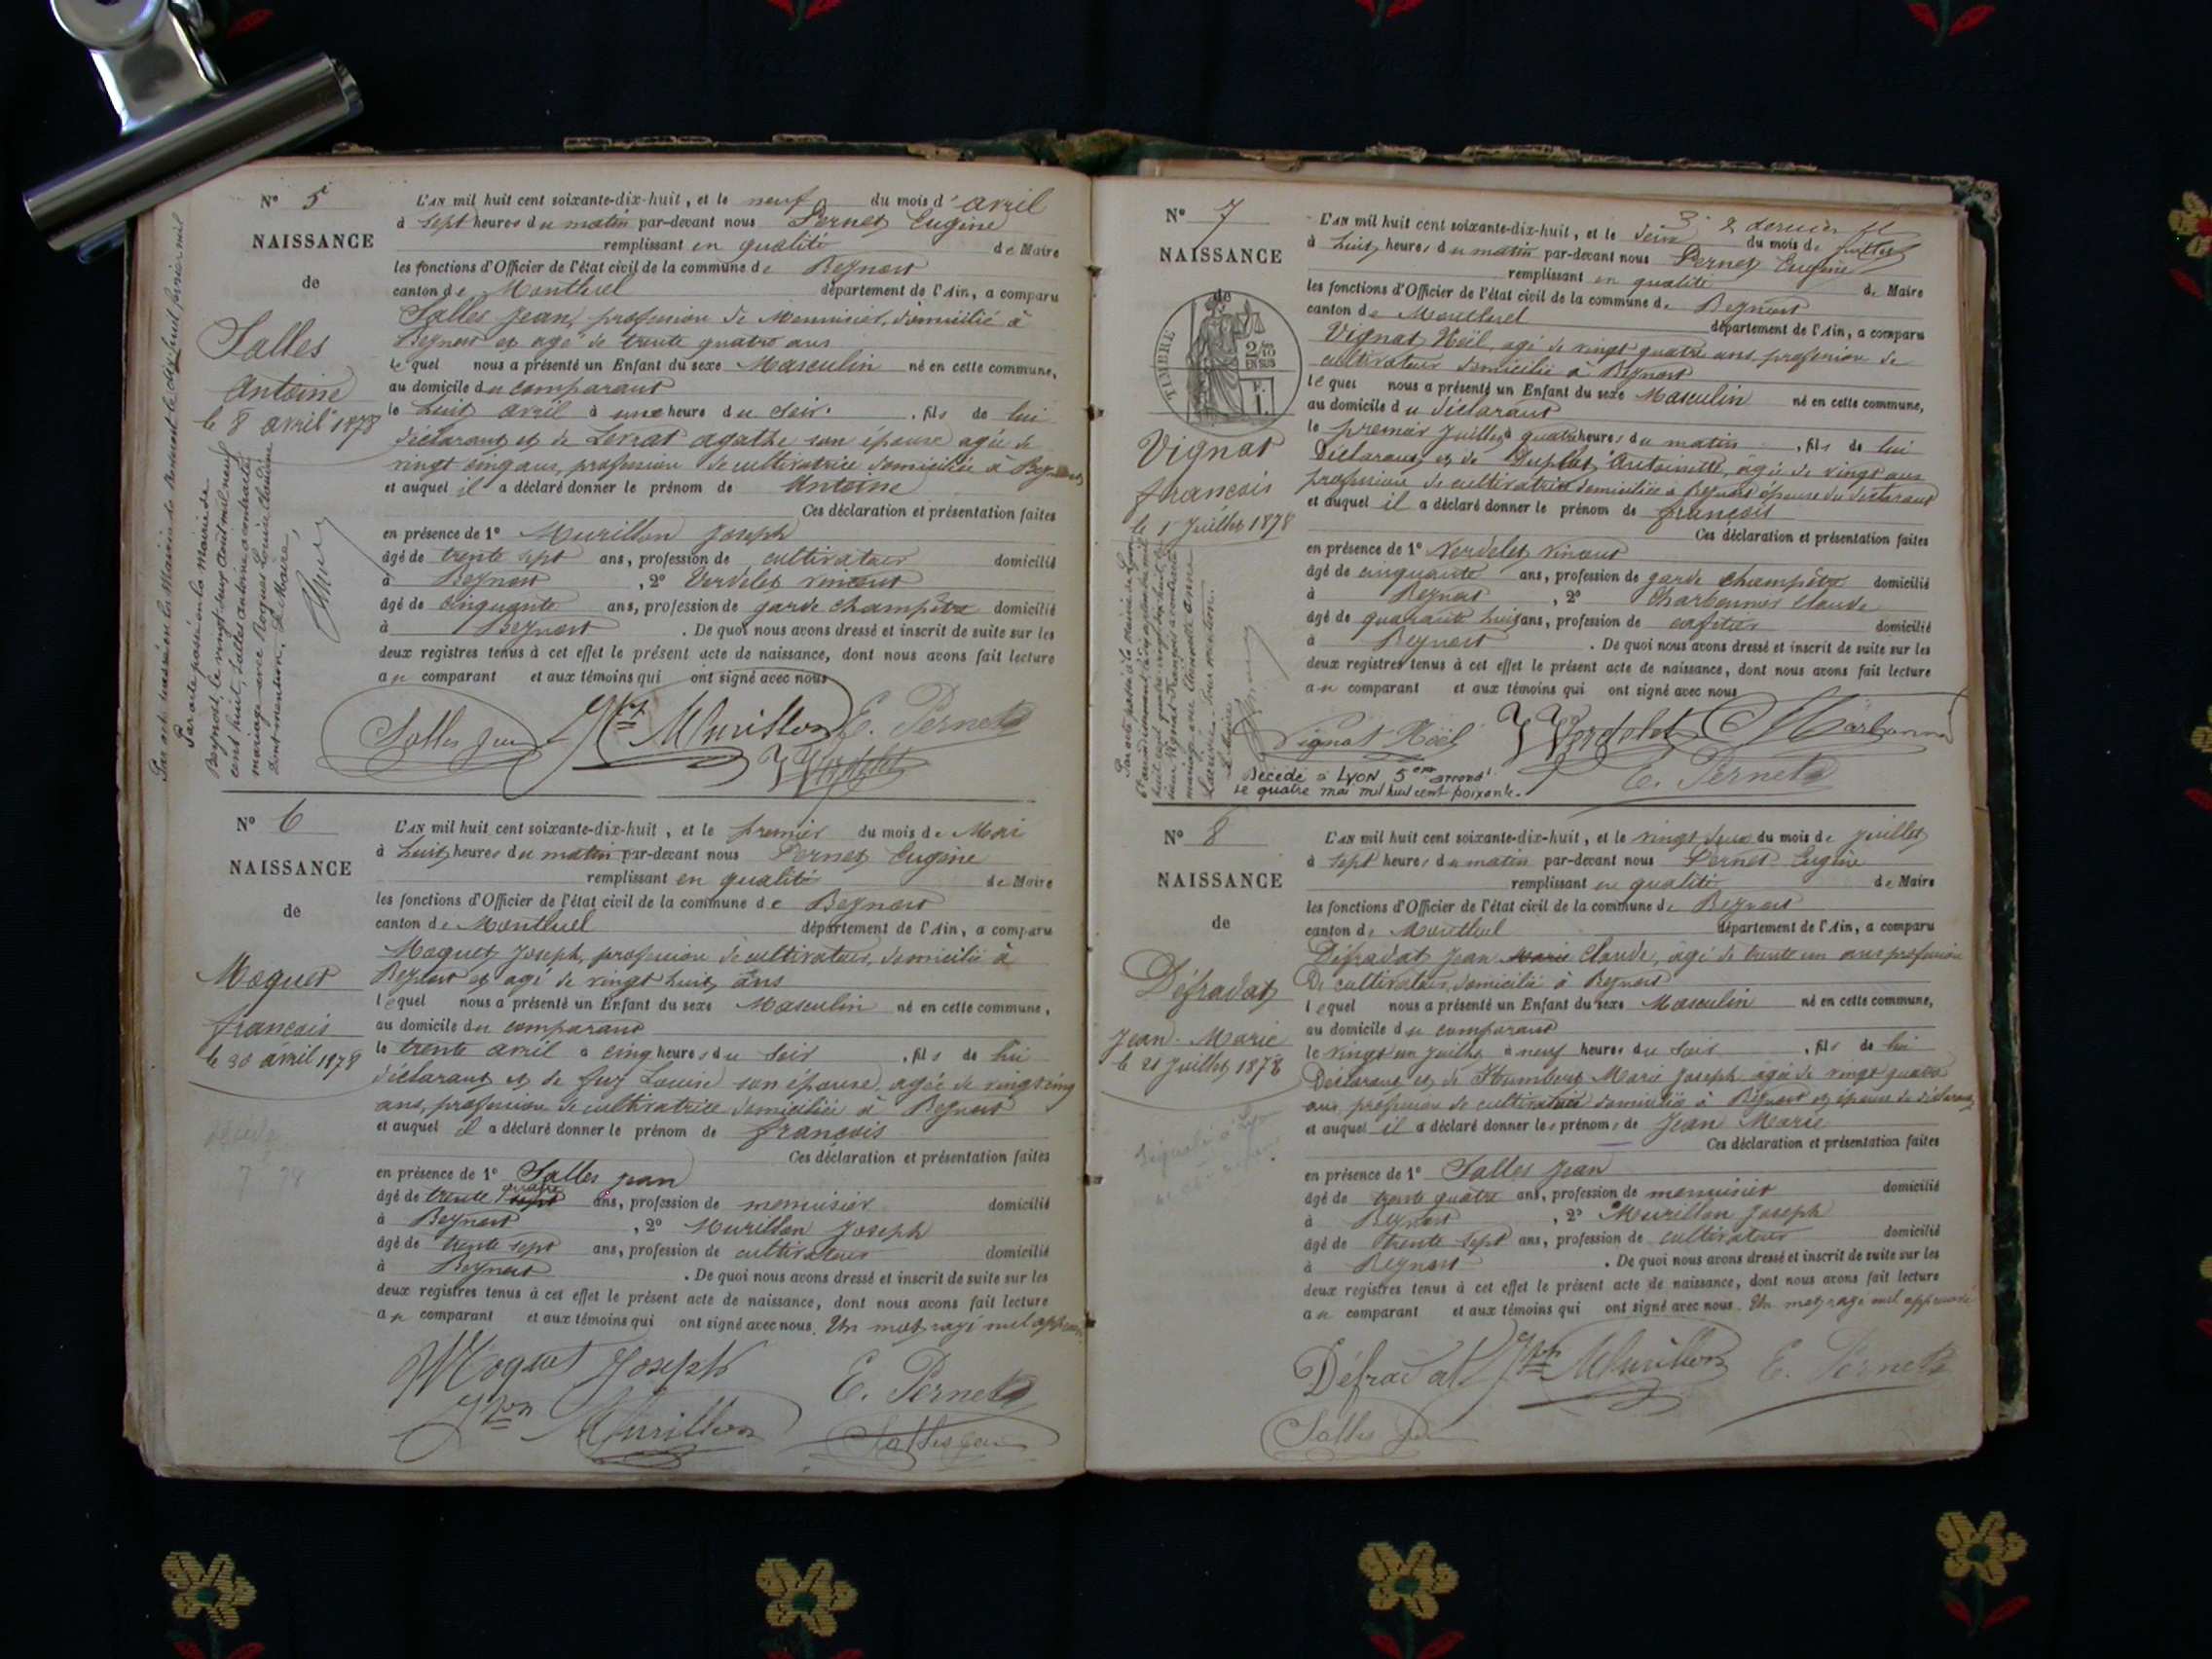 N° 5
NAISSANCE
de
Salles
Antoine
le 8 avril 1878
Par acte passé en la Mairie de
Beynost, le vingt-deux août mil neuf
cent huit, Salles Antoine a contracté
mariage avec Roques Louise Claudine
Dont mention. Le Maire,
L'AN mil huit cent soixante-dix-huit, et le neuf du mois d'avril
à sept heures du matin par-devant nous Pernet Eugène
remplissant en qualité de Maire
les fonctions d'Officier de l'état civil de la commune de Beynost
canton de Montluel département de l'Ain, a comparu
Salles Jean, profession de Menuisier, domicilié à
Beynost et agé de trente quatre ans
lequel nous a présenté un Enfant du sexe Masculin né en cette commune,
au domicile du comparant
le huit avril à une heure du soir. , fils de lui
déclarant et de Agathe son épouse agée de
vingt cinq ans, profession de cultivatrice domiciliée à Beynost
et auquel il a déclaré donner le prénom de Antoine
Ces déclaration et présentation faites
en présence de 1° Murillon Joseph
âgé de trente sept ans, profession de cultivateur domicilié
à Beynost , 2° Verdelet vincent
âgé de cinquante ans, profession de garde champêtre domicilié
à Beynost . De quoi nous avons dressé et inscrit de suite sur les
deux registres tenus à cet effet le présent acte de naissance, dont nous avons fait lecture
au comparant et aux témoins qui ont signé avec nous
Salles Jean Jph Murillon E. Pernet
V Verdelet
N° 6
NAISSANCE
de
Moquet
francois
le 30 avril 1878
L'AN mil huit cent soixante-dix-huit, et le premier du mois de Mai
à huit heures du matin par-devant nous Pernet Eugène
remplissant en qualité de Maire
les fonctions d'Officier de l'état civil de la commune de Beynost
canton de Montluel département de l'Ain, a comparu
Moquet Joseph, profession de cultivateur, domicilié à
Beynost et agé de vingt huit ans
lequel nous a présenté un Enfant du sexe Masculin né en cette commune,
au domicile du comparant
le trente avril à cinq heures du soir , fils de lui
déclarant et de Louise son épouse, agée de vingt cinq
ans, profession de cultivatrice domiciliée à Beynost
et auquel il a déclaré donner le prénom de françois
Ces déclaration et présentation faites
en présence de 1° Salles Jean
âgé de trente quatre ans, profession de menuisier domicilié
à Beynost , 2° Murillon Joseph
âgé de trente sept ans, profession de cultivateur domicilié
à Beynost . De quoi nous avons dressé et inscrit de suite sur les
deux registres tenus à cet effet le présent acte de naissance, dont nous avons fait lecture
au comparant et aux témoins qui ont signé avec nous. Un mot rayé nul approuvé
Moquet Joseph E. Pernet
Jph Murillon Salles Jean
N° 7
NAISSANCE
de
TIMBRE
Vignat
francois
le 1 Juillet 1878
L'AN mil huit cent soixante-dix-huit, et le deux du mois de Juillet
à huit heures du matin par-devant nous Pernet Eugène
remplissant en qualité de Maire
les fonctions d'Officier de l'état civil de la commune de Beynost
canton de Montluel département de l'Ain, a comparu
Vignat Noël, agé de vingt quatre ans, profession de
cultivateur domicilié à Beynost
lequel nous a présenté un Enfant du sexe Masculin né en cette commune,
au domicile du déclarant
le premier Juillet à quatre heures du matin , fils de lui
Déclarant, et de Antoinette, agée de vingt ans
profession de cultivatrice domiciliée à Beynost épouse du déclarant
et auquel il a déclaré donner le prénom de francois
Ces déclaration et présentation faites
en présence de 1° Verdelet vincent
âgé de cinquante ans, profession de garde champêtre domicilié
à Beynost , 2° Charbonnier Claude
âgé de quarante huit ans, profession de domicilié
à Beynost . De quoi nous avons dressé et inscrit de suite sur les
deux registres tenus à cet effet le présent acte de naissance, dont nous avons fait lecture
au comparant et aux témoins qui ont signé avec nous
Vignat Noël V Verdelet
Décédé à LYON 5em arrond'
Le quatre mai mil
E. Pernet
N° 8
NAISSANCE
de
Défradat
Jean Marie
le 21 Juillet 1878
L'AN mil huit cent soixante-dix-huit, et le vingt deux du mois de Juillet
à sept heures du matin par-devant nous Pernet Eugène
remplissant en qualité de Maire
les fonctions d'Officier de l'état civil de la commune de Beynost
canton de Montluel département de l'Ain, a comparu
Défradat Jean Marie Claude, agé de trente un ans profession
De cultivateur, domicilié à Beynost
lequel nous a présenté un Enfant du sexe Masculin né en cette commune,
au domicile du comparant
le vingt un Juillet à neuf heures du soir , fils de lui
Déclarant, et de Humbert Marie Joseph agée de vingt quatre
ans, profession de cultivatrice domiciliée à Beynost et épouse du déclarant
et auquel il a déclaré donner les prénoms de Jean Marie
Ces déclaration et présentation faites
en présence de 1° Salles Jean
âgé de trente quatre ans, profession de menuisier domicilié
à Beynost , 2° Murillon Joseph
âgé de trente sept ans, profession de cultivateur domicilié
à Beynost . De quoi nous avons dressé et inscrit de suite sur les
deux registres tenus à cet effet le présent acte de naissance, dont nous avons fait lecture
au comparant et aux témoins qui ont signé avec nous. Un mot rayé nul approuvé
Défradat Jph Murillon E. Pernet
Salles Jean